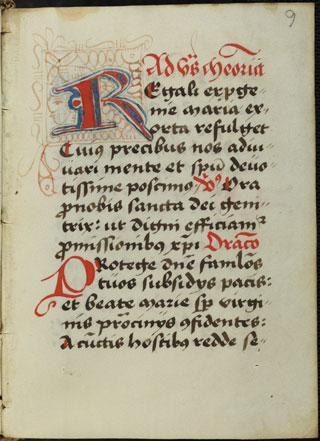 9
Ad vs̄ memoria
REgali ex p̱ge-
nie maria ex-
orta refulget
Cuius precibus nos adiu-
uari mente et spū deuo-
tissime poscimus V̄s Ora
p̱ nobis sancta dei geni-
trix: ut digni efficiamr̄
p̱missionibus xp̄i Oracō
PRotege dn̄e famlōs
tuos subsidijs pacis:
et beate marie sp̄ virgi-
nis p̱rocinijs ꝯfidentes:
A cūctis hostibus redde se-